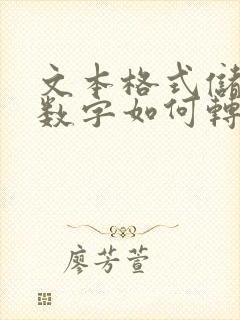 文本格式儲
数字如何轉
廖芳萱